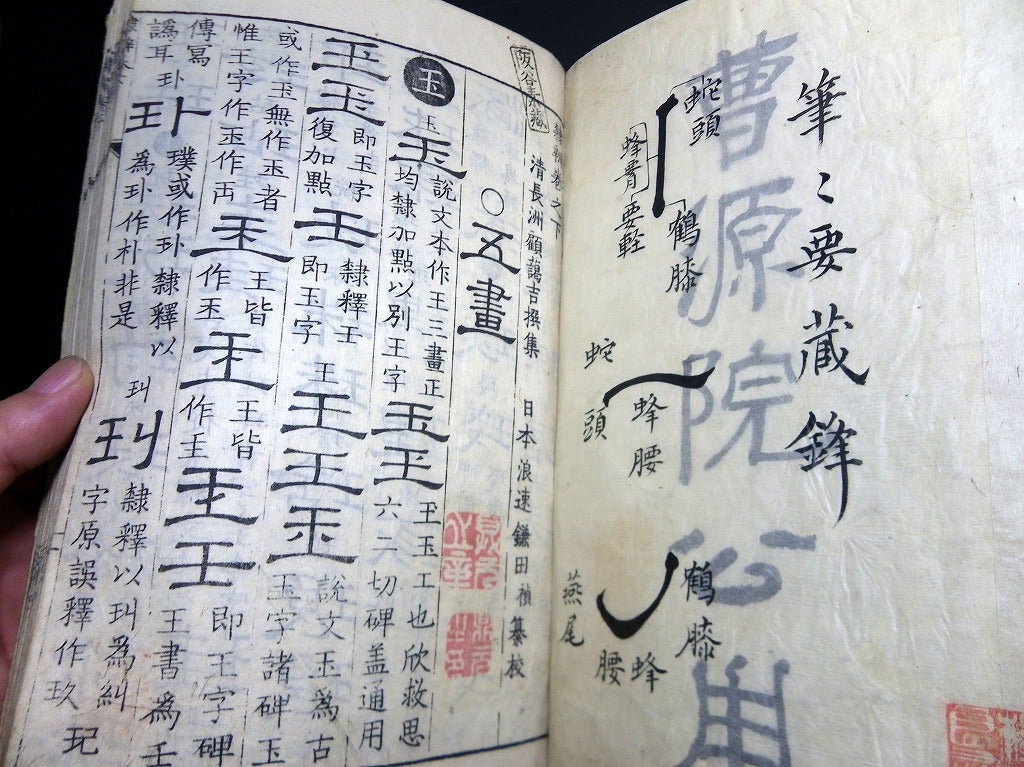 筆〻要藏鋒
曹源院公用
蛇頭
鶴膝
要軽
蛇頭
蜂腰
鶴膝
蜂腰
燕尾
卷之下
清長洲顧藹吉撰集
日本浪速鎌田禎纂校
○五畫
玉
玉
玉
說文本作王三畫正
均隸加點以別王字
玉
王
玊玉工也欣救思
六二切碑盖通用
玉
玉
即玉字
復加點
王
隸釋王
即玉字
王
王
王
玉
說文玉為古
玉字諸碑玉
或作玉無作玉者
惟王字作玉作
王皆
作玉
王皆
作
即王字碑
王書為壬
傳寫
譌耳
圤
璞或作圤隸釋以
為圤作朴非是
玌
玌
隸釋以玌為糾
字原誤釋作玖
玘